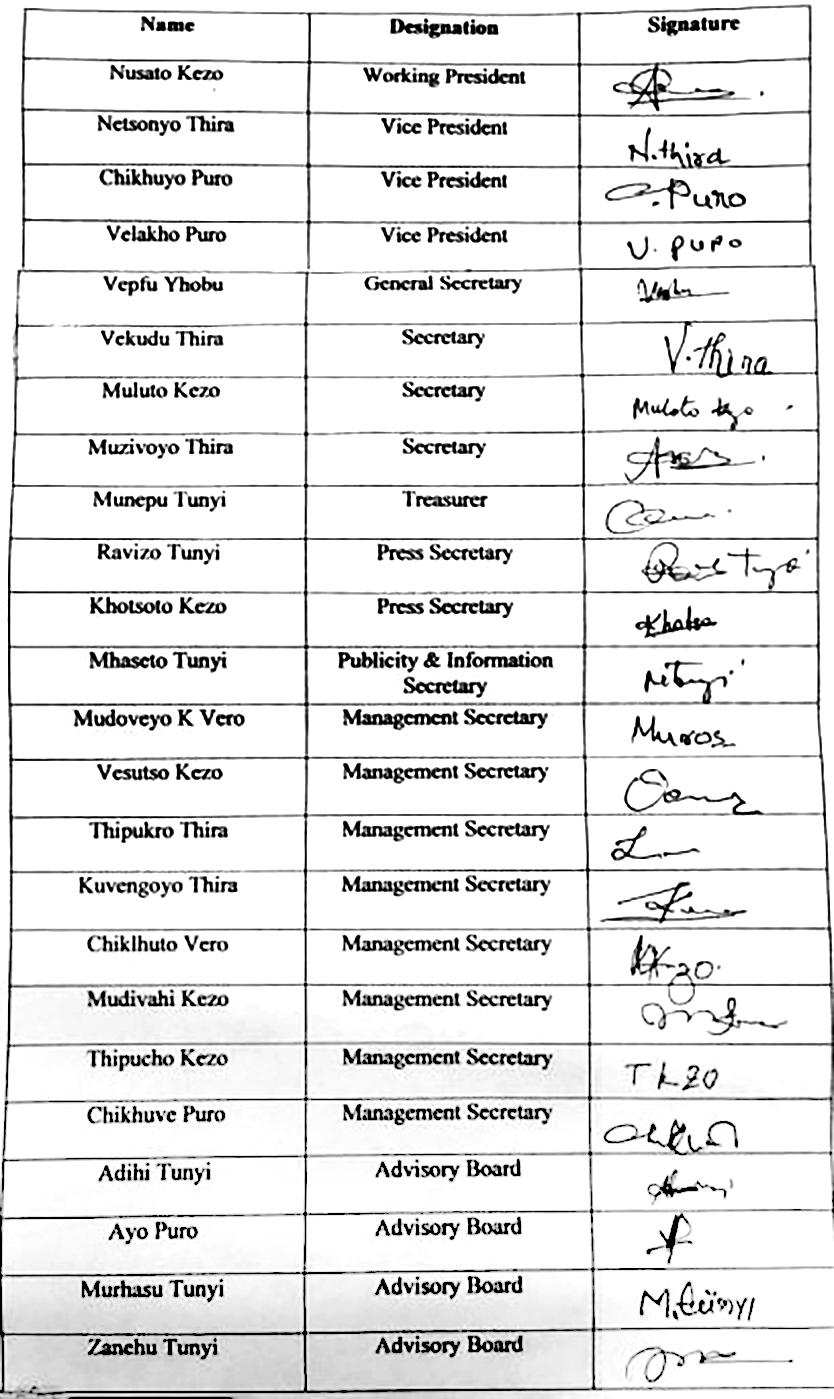 Name Designation Signature
Nusato Kezo Working President
Netsonyo Thira Vice President N.thira
Chikhuyo Puro Vice President C.Puro
Velakho Puro Vice President V. PURO
Vepfu Yhobu General Secretary
Vekudu Thira Secretary V.thira
Muluto Kezo Secretary Muloto
Muzivoyo Thira Secretary
Munepu Tunyi Treasurer
Ravizo Tunyi Press Secretary
Khotsoto Kezo Press Secretary
Mhaseto Tunyi Publicity & Information
Secretary
Mudoveyo K Vero Management Secretary
Vesutso Kezo Management Secretary
Thipukro Thira Management Secretary
Kuvengoyo Thira Management Secretary
Chiklhuto Vero Management Secretary
Mudivahi Kezo Management Secretary
Thipucho Kezo Management Secretary
Chikhuve Puro Management Secretary
Adihi Tunyi Advisory Board
Ayo Puro Advisory Board
Murhasu Tunyi Advisory Board M.tünyi
Zanehu Tunyi Advisory Board